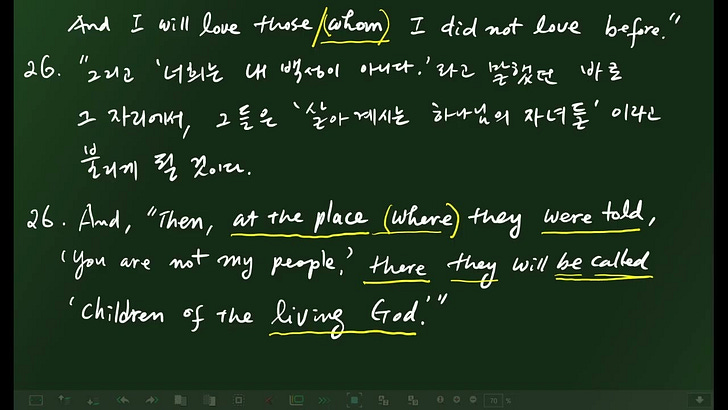 And I will love those (whom) I did not love before."
26. "그리고 '너희는 내 백성이 아니다.'라고 말했던 바로
그 자리에서, 그들은 '살아계시는 하나님의 자녀들'이라고
불리게 될 것이다.
26. And, "Then, at the place (where) they were told,
'You are not my people,' there they will be called
'children of the living God.'"
70 %